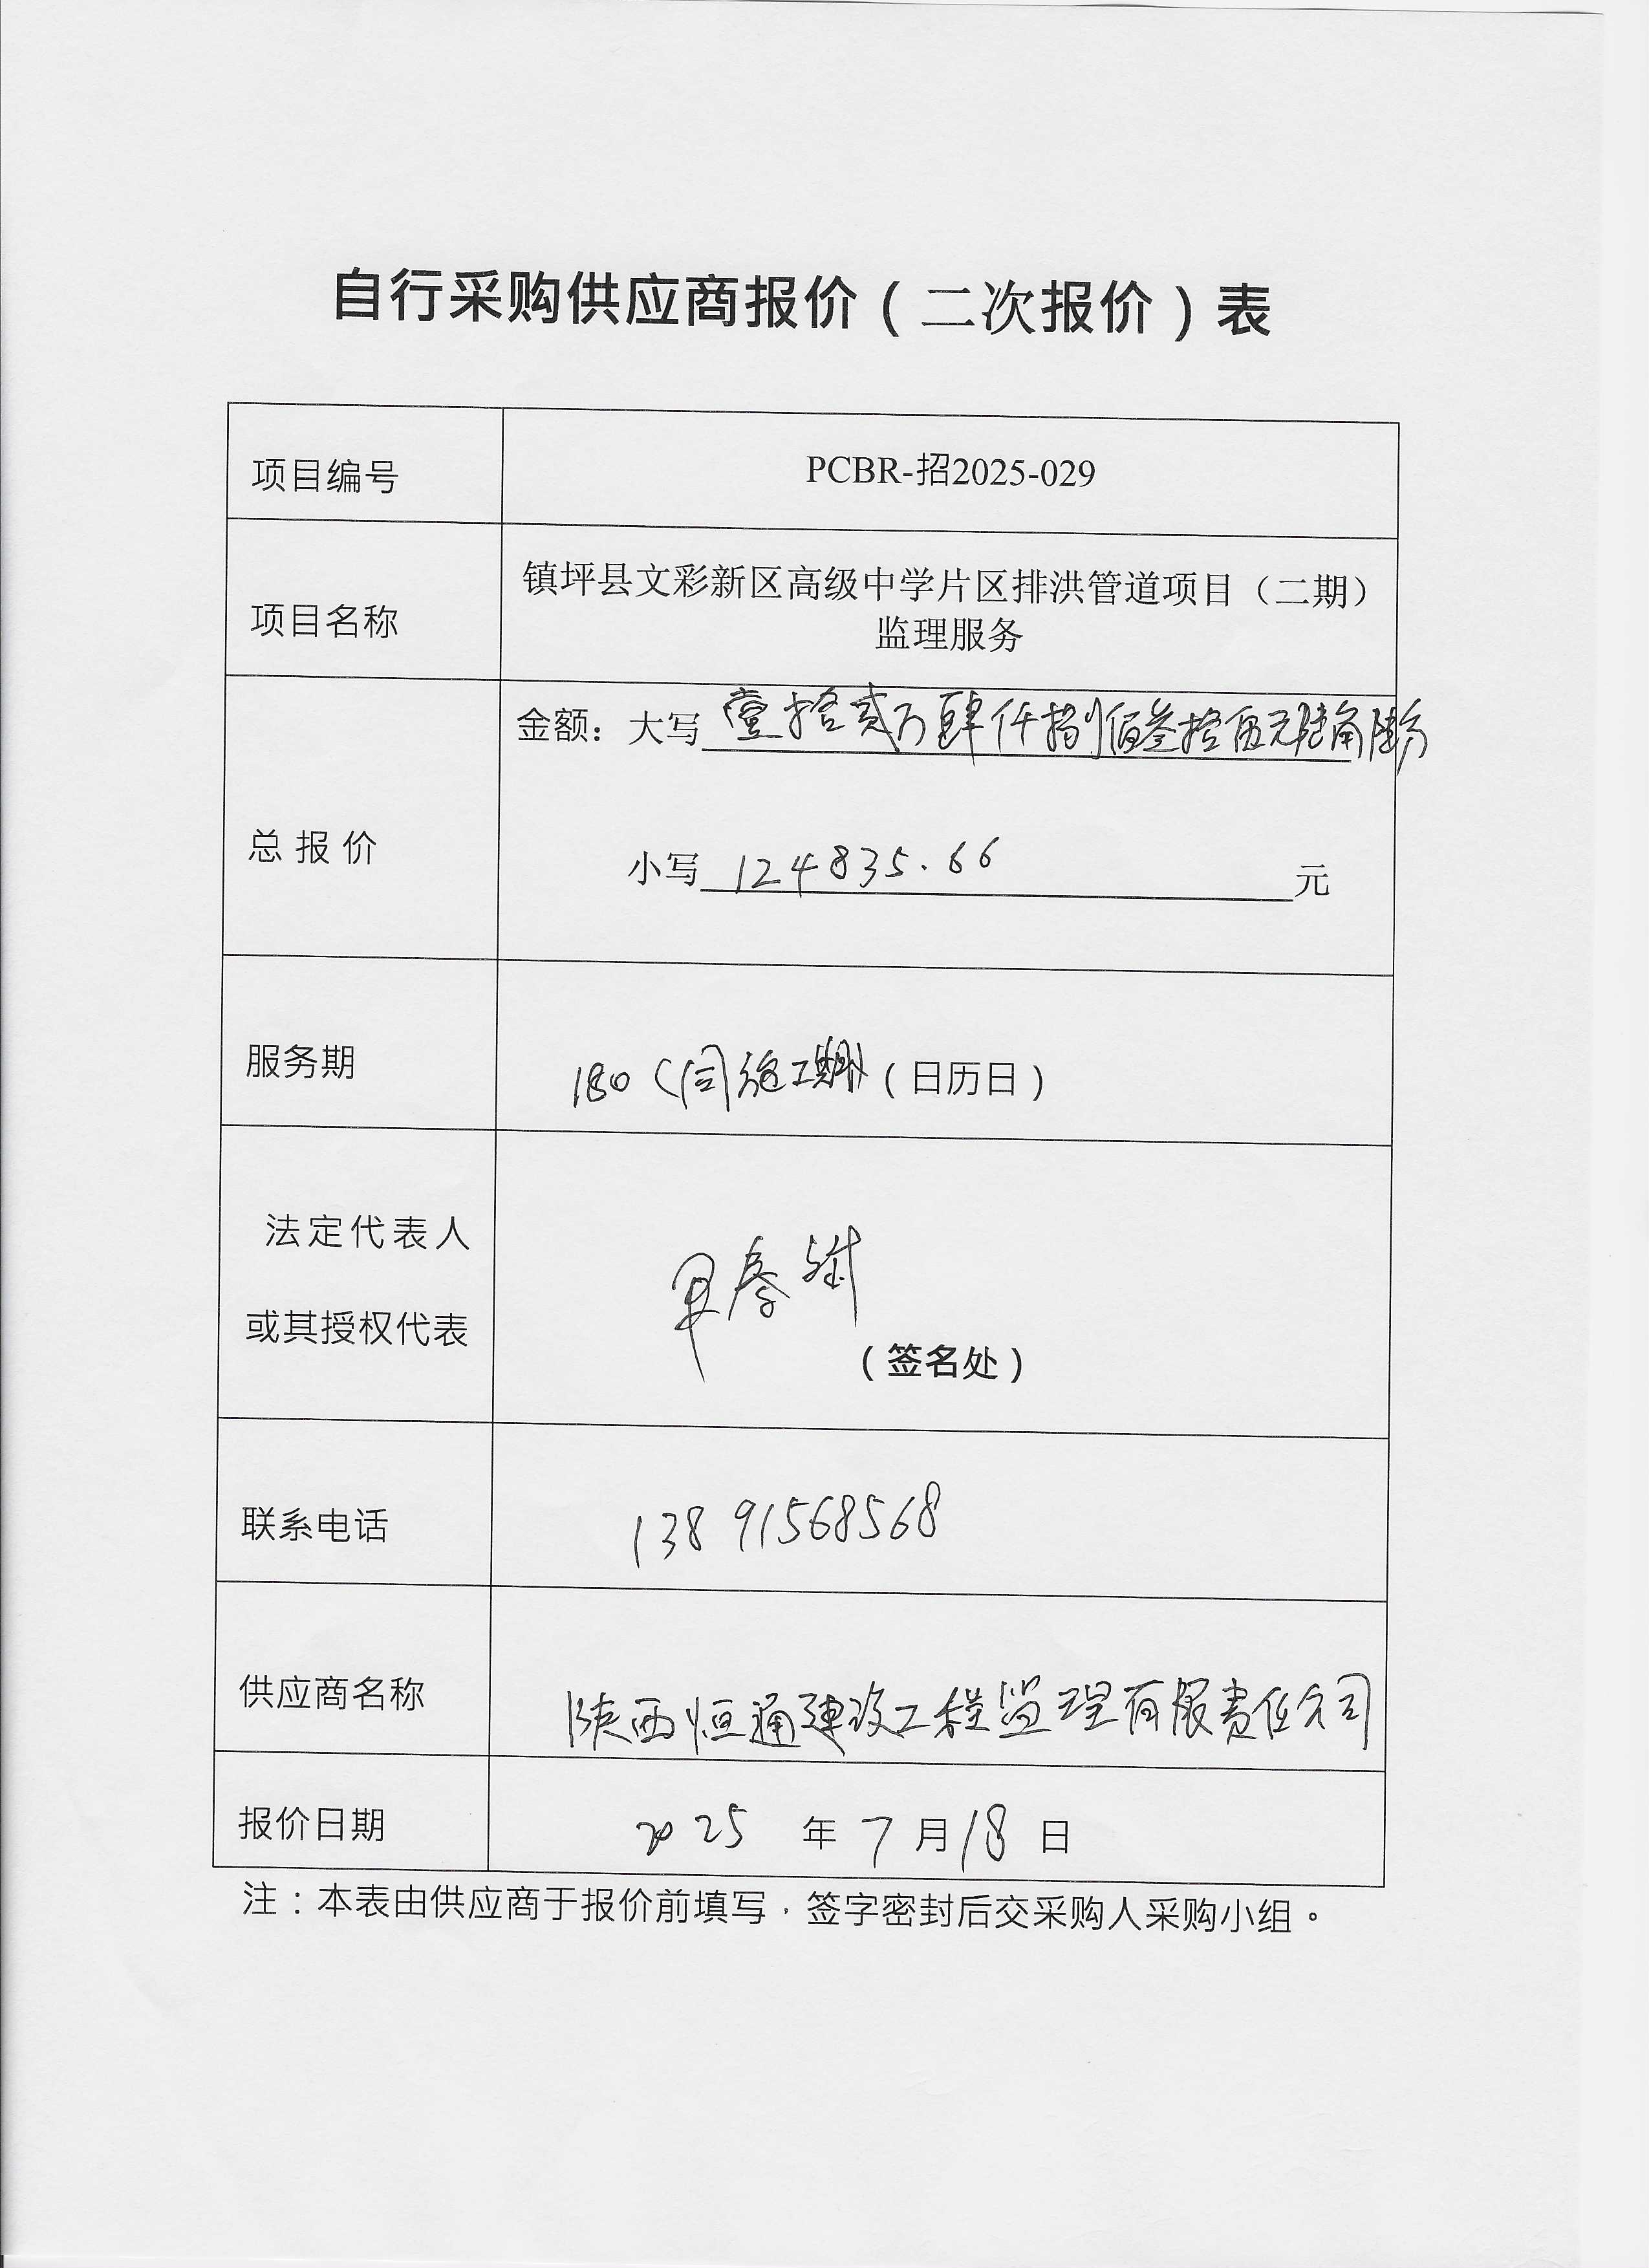 自行采购供应商报价（二次报价）表
项目编号
PCBR-招2025-029
项目名称
镇坪县文彩新区高级中学片区排洪管道项目（二期）
监理服务
总报价
金额：大写 壹拾贰万肆仟捌佰叁拾伍元陆角陆分
小写 124835.66 元
服务期
180（同施工期）（日历日）
法定代表人
或其授权代表
（签名处）
联系电话
13891568568
供应商名称
陕西恒通建设工程监理有限责任公司
报价日期
2025 年 7 月 18 日
注：本表由供应商于报价前填写，签字密封后交采购人采购小组。